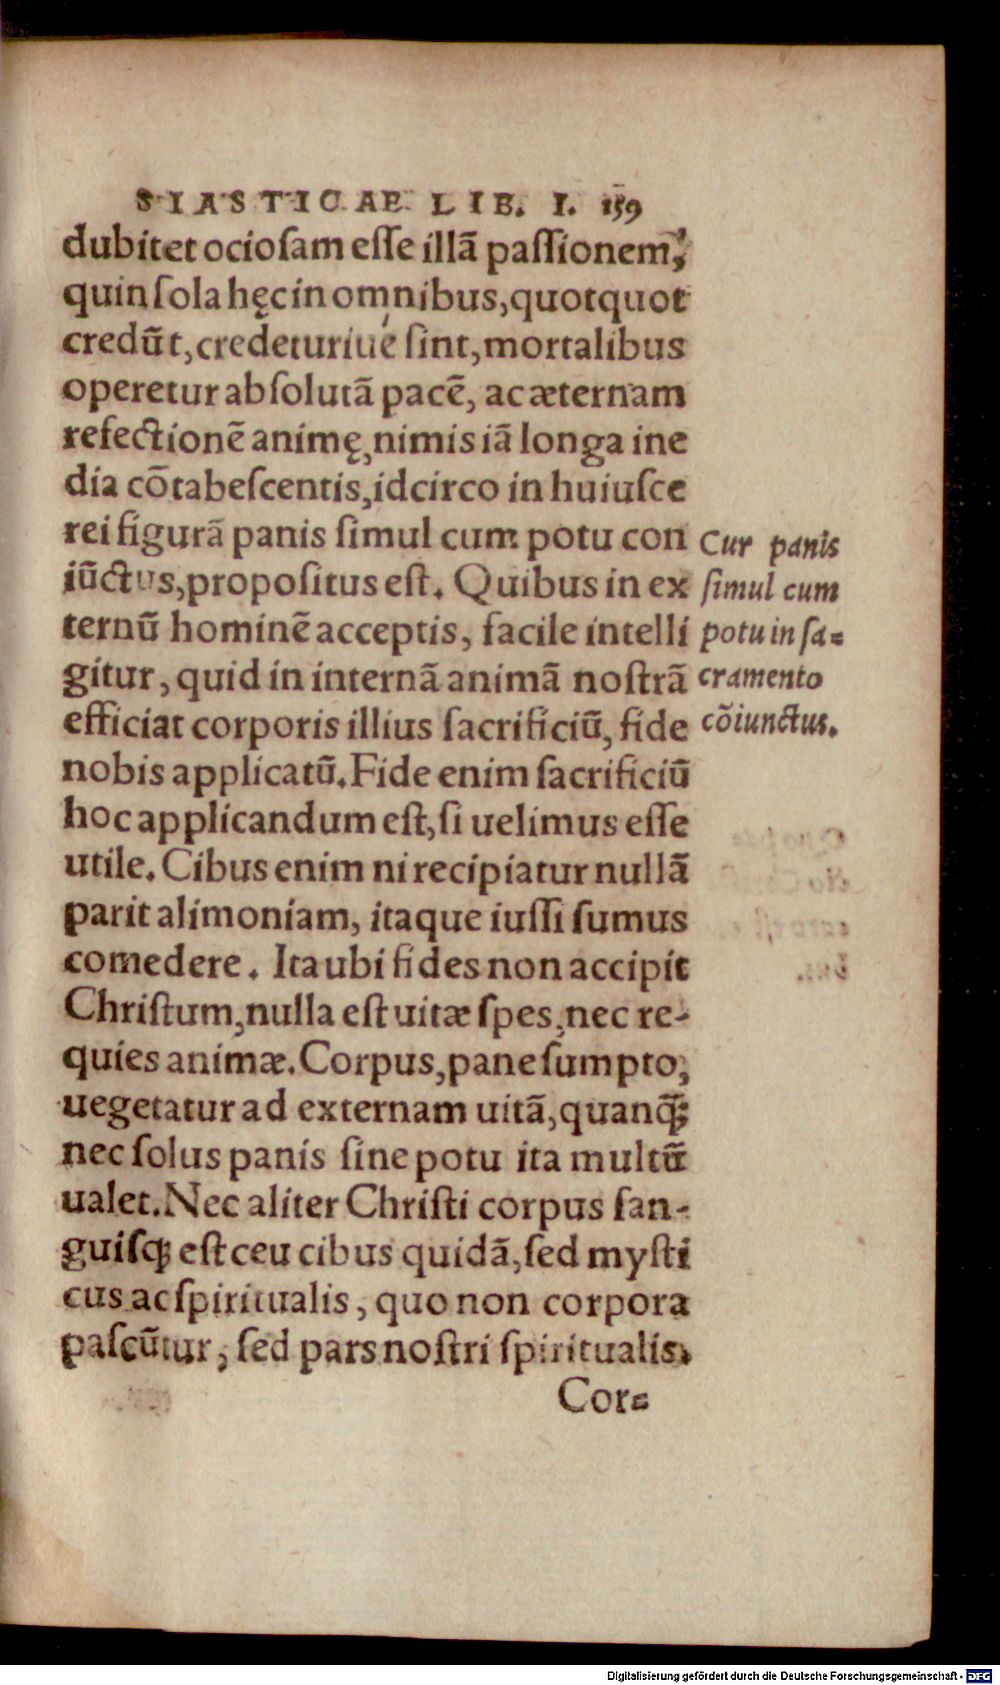 SIASTICAE LIB. I. 159
dubitet ociosam esse illā passionem,
quin sola hęc in omnibus, quotquot
credūt, credeturiue sint, mortalibus
operetur absolutā pacē, ac æternam
refectionē animę, nimis iā longa ine
dia cōtabescentis, idcirco in huiusce
rei figurā panis simul cum potu con
iūctus, propositus est. Quibus in ex
ternū hominē acceptis, facile intelli
gitur, quid in internā animā nostrā
efficiat corporis illius sacrificiū, fide
nobis applicatū. Fide enim sacrificiū
hoc applicandum est, si uelimus esse
utile. Cibus enim ni recipiatur nullā
parit alimoniam, itaque iussi sumus
comedere. Ita ubi fides non accipit
Christum, nulla est uitæ spes, nec re-
quies animæ. Corpus, pane sumpto,
uegetatur ad externam uitā, quanq̃;
nec solus panis sine potu ita multū
ualet. Nec aliter Christi corpus san-
guisq; est ceu cibus quidā, sed mysti
cus ac spiritualis, quo non corpora
pascūtur, sed pars nostri spiritualis.
Cor=
Cur panis
simul cum
potu in sa=
cramento
cōiunctus.
Digitalisierung gefördert durch die Deutsche Forschungsgemeinschaft - DFG